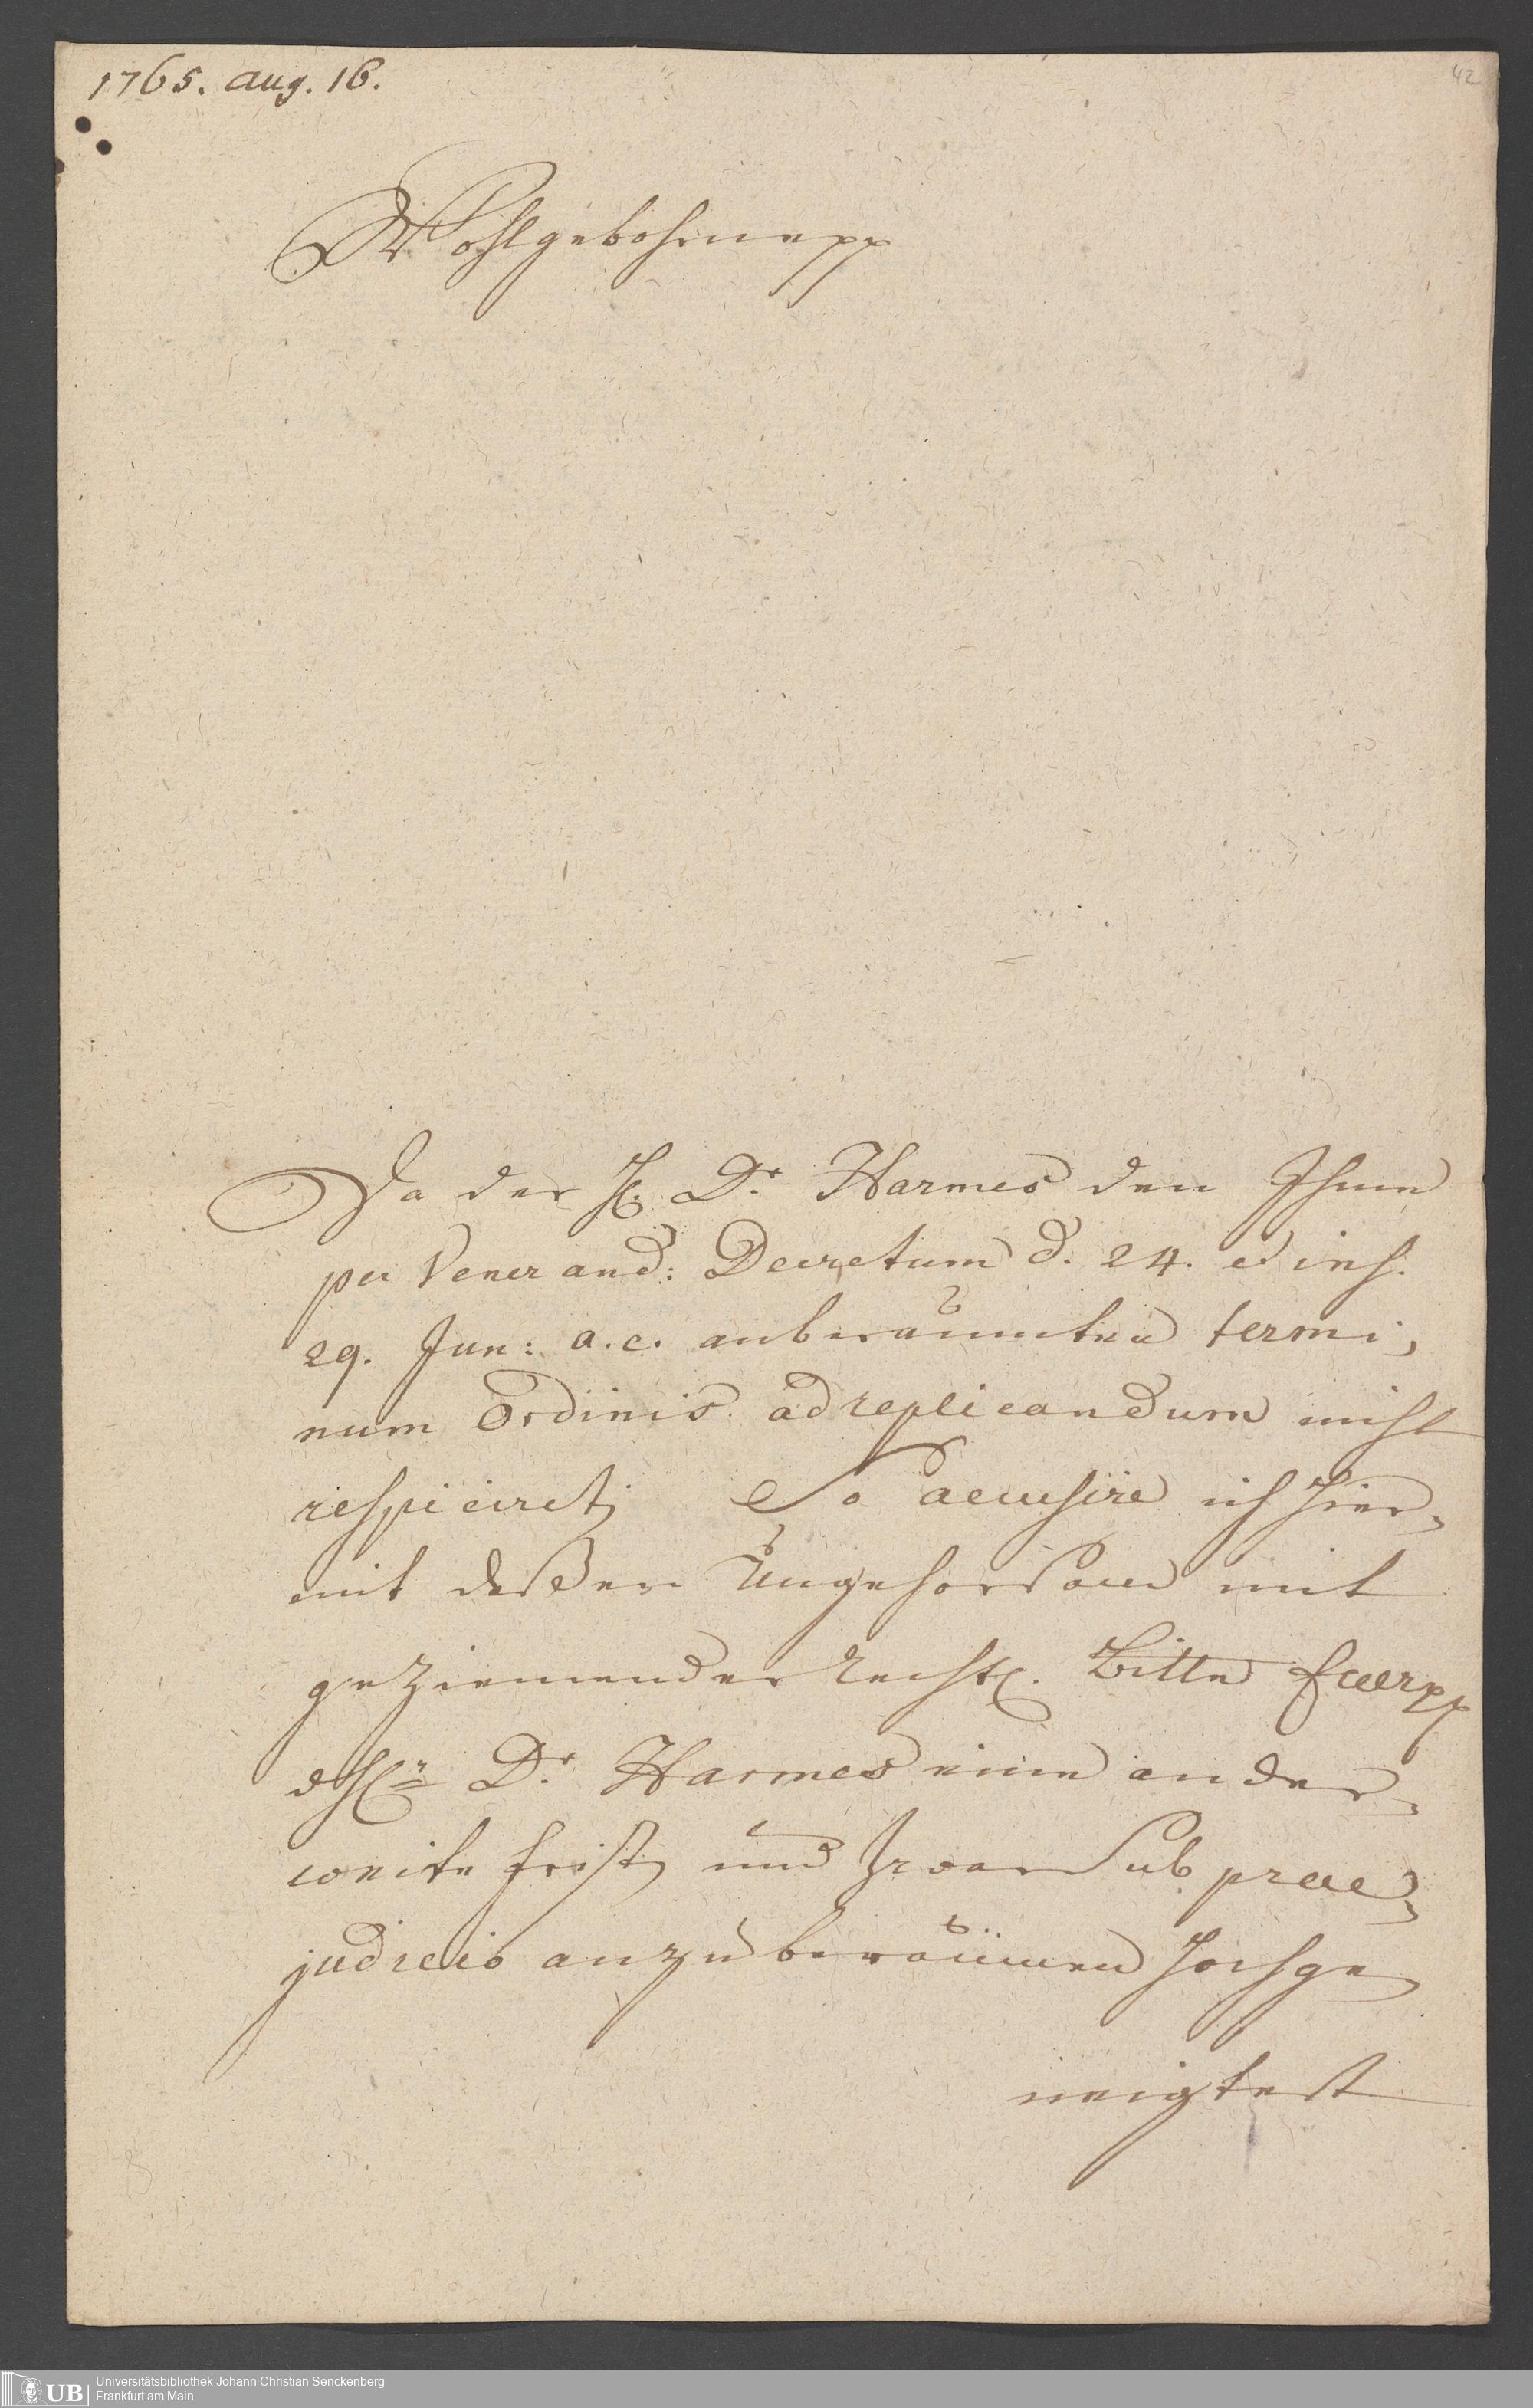 1765. Aug. 16.
42
Wohlgebohrne pp
Da der H. Dr. Harmes den Ihme
per Venerand: Decretum d. 24. et ins.
29. Jun: a. c. anberaumten termi,
num Ordinis ad replicandum nicht
respiciret; So accusire ich hier,
mit deßen Ungehorsam mit
geziemender rechtl. Bitte Ewer pp
dHn Dr. Harmes eine ander,
weite frist, und zwar sub prae,
judicio anzuberaumen hochge
neigtest
UB
Universitätsbibliothek Johann Christian Senckenberg
Frankfurt am Main